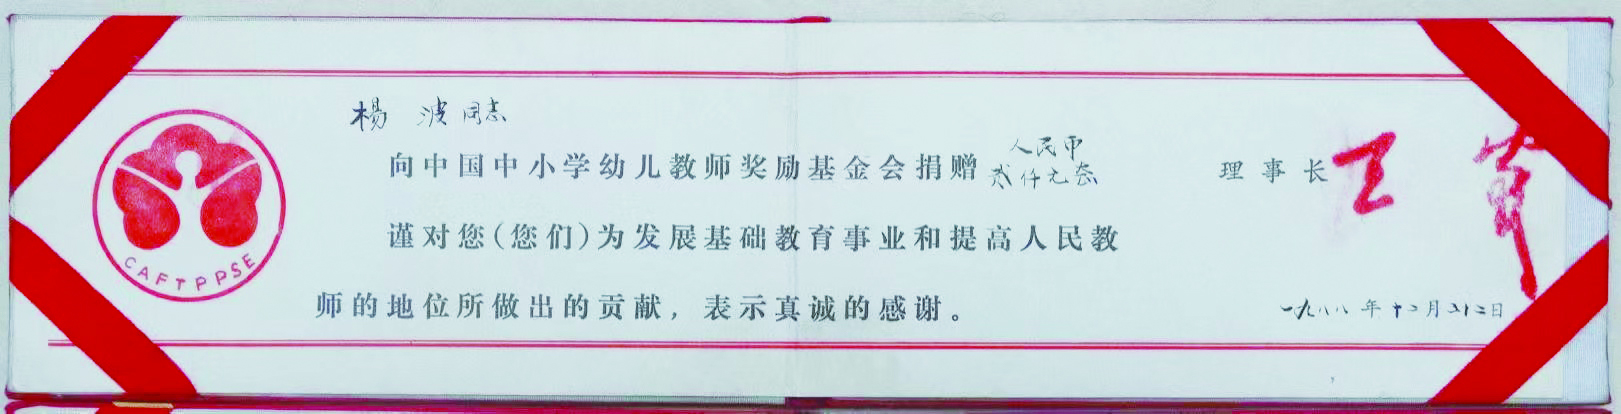 CAFTPPSE
楊 波 同志
向中国中小学幼儿教师奖励基金会捐赠 人民币
贰仟元整
谨对您(您们)为发展基础教育事业和提高人民教
师的地位所做出的贡献，表示真诚的感谢。
理事长
一九八八年十二月二十二日